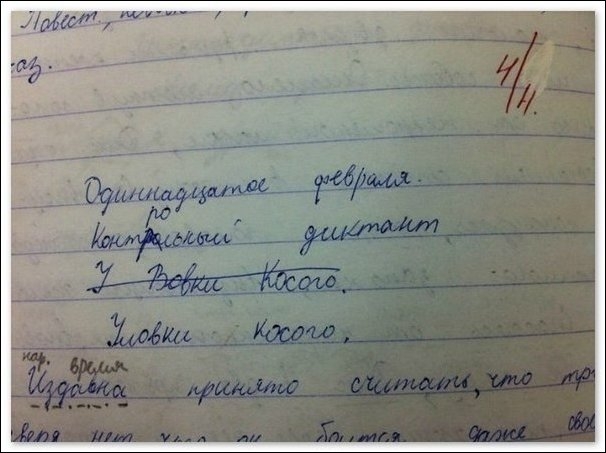 Повест.,
аз.
4/4.
Одиннадцатое февраля.
Контрольный диктант
У Вовки Косого.
Уловки косого.
нар. время
Издавна принято считать, что
зверя нет, боится даже сво